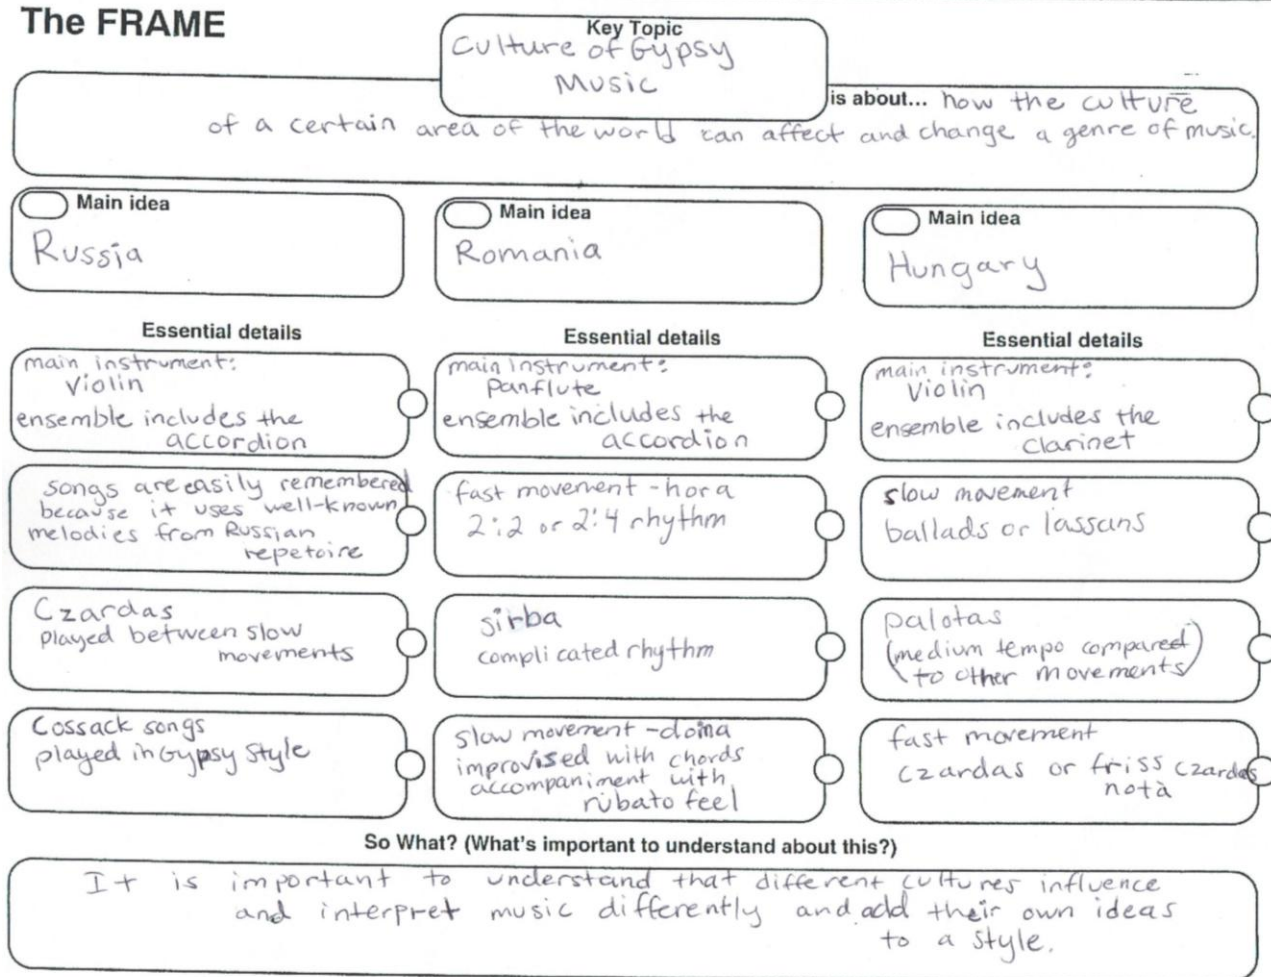 The FRAME
Key Topic
Culture of Gypsy
Music
is about... how the culture
of a certain area of the world can affect and change a genre of music.
Main idea
Russia
Main idea
Romania
Main idea
Hungary
Essential details
main instrument:
Violin
ensemble includes the
accordion
songs are easily remembered
because it uses well-known
melodies from Russian
repetoire
Czardas
played between slow
movements
Cossack songs
played in Gypsy Style
Essential details
main instrument:
Panflute
ensemble includes the
accordion
fast movement - hora
2:2 or 2:4 rhythm
sirba
complicated rhythm
slow movement - doina
improvised with chords
accompaniment with
rubato feel
Essential details
main instrument:
Violin
ensemble includes the
clarinet
slow movement
ballads or lassans
palotas
(medium tempo compared
to other movements)
fast movement
czardas or friss czardas
notà
So What? (What's important to understand about this?)
It is important to understand that different cultures influence
and interpret music differently and add their own ideas
to a style.